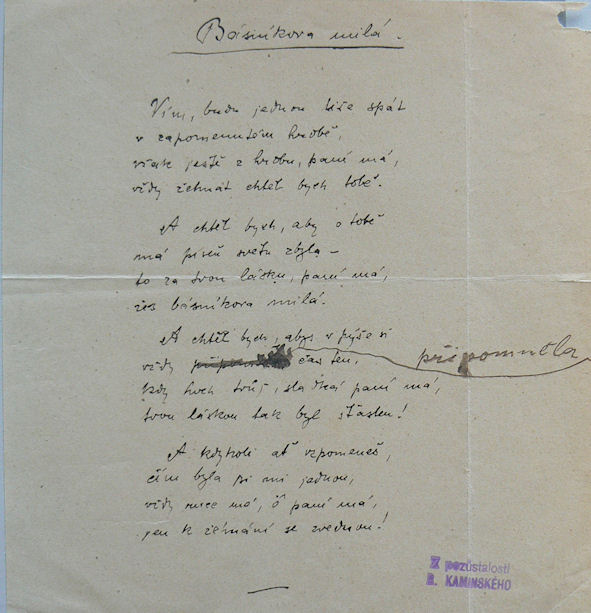 Básníkova milá.
Vím, budu jednou tiše spát
v zapomenutém hrobě,
však ještě z hrobu, paní má,
vždy žehnat chtěl bych tobě.
A chtěl bych, aby o tobě
má píseň světu zbyla –
to za tvou lásku, paní má,
žes básníkova milá.
A chtěl bych, abys v pýše si
vždy připomněla čas ten,
kdy hoch tvůj, sladká paní má,
tvou láskou tak byl šťasten!
A kdykoli ať vzpomeneš,
čím byla jsi mi jednou,
vždy ruce mé, ó paní má,
jen k žehnání se zvednou!
Z pozůstalosti
B. KAMINSKÉHO